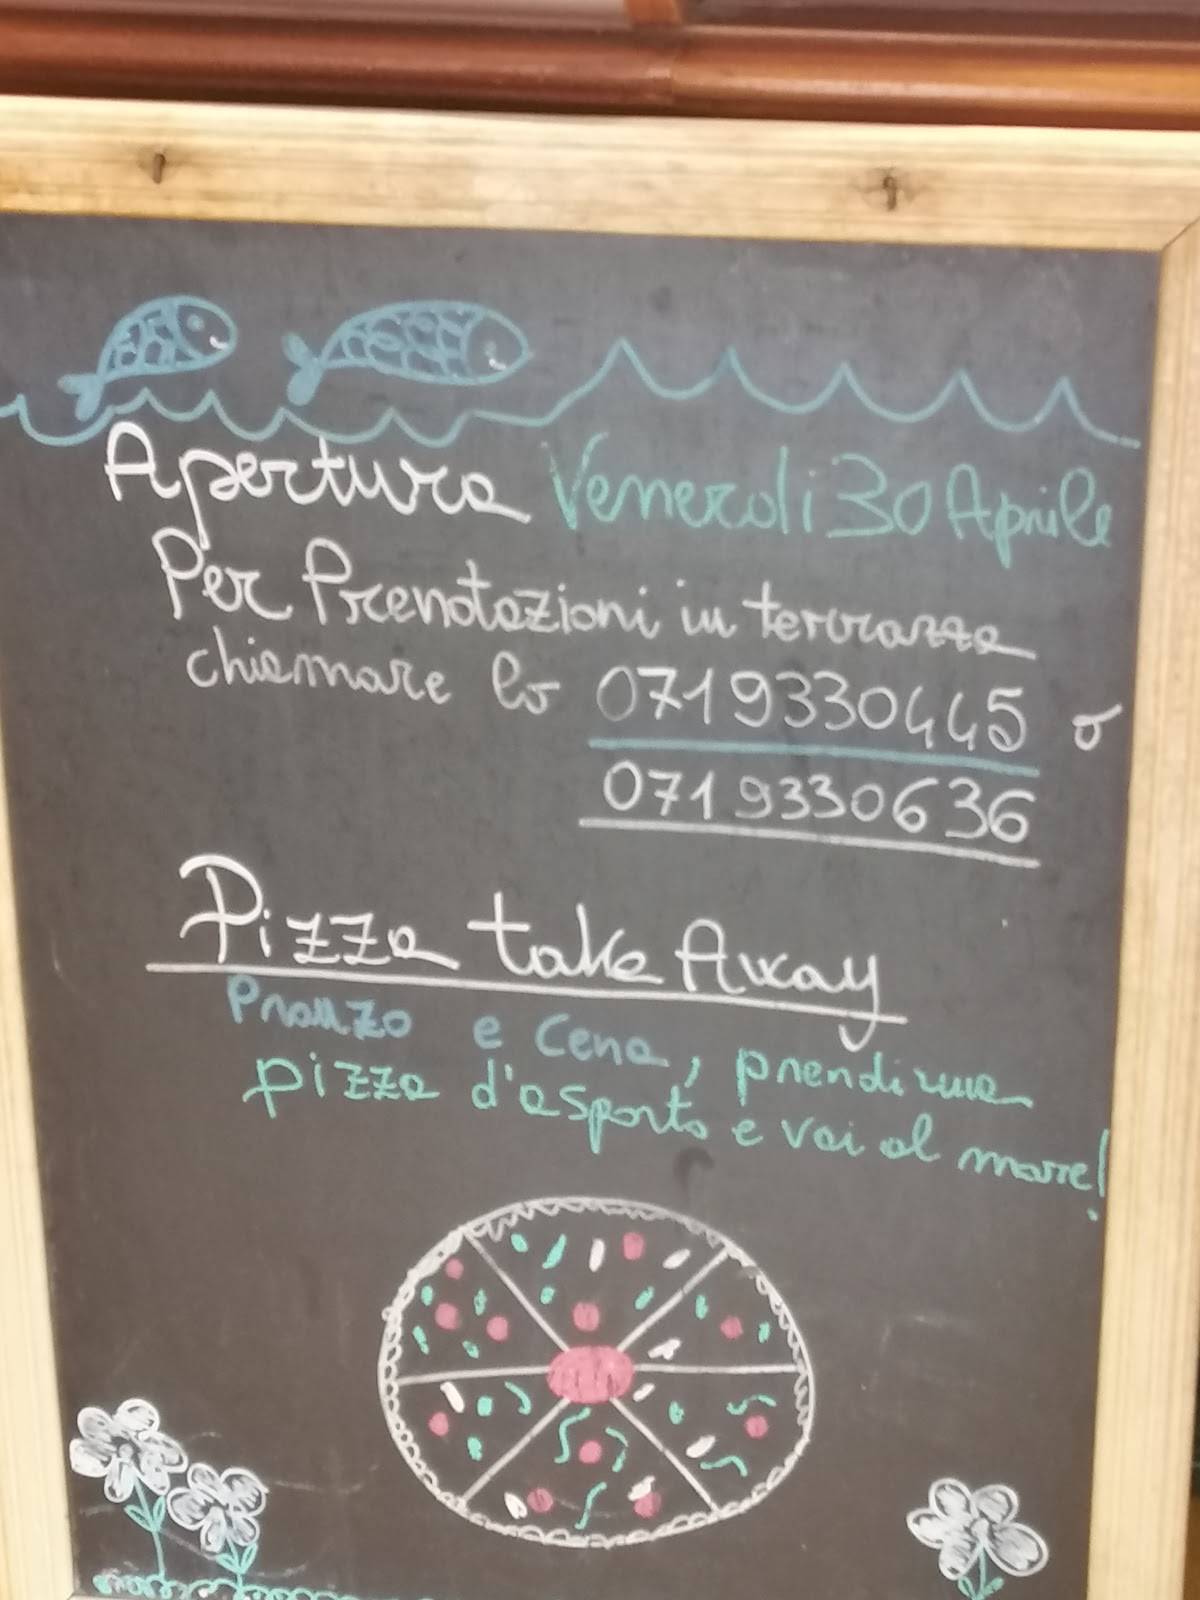 Apertura Venerdi 30 Aprile
Per Prenotazioni in terrazza
chiamare lo 0719330445 o
0719330636
Pizza take Away
Pranzo e Cena, prendi una
pizza d'asporto e vai al mare!